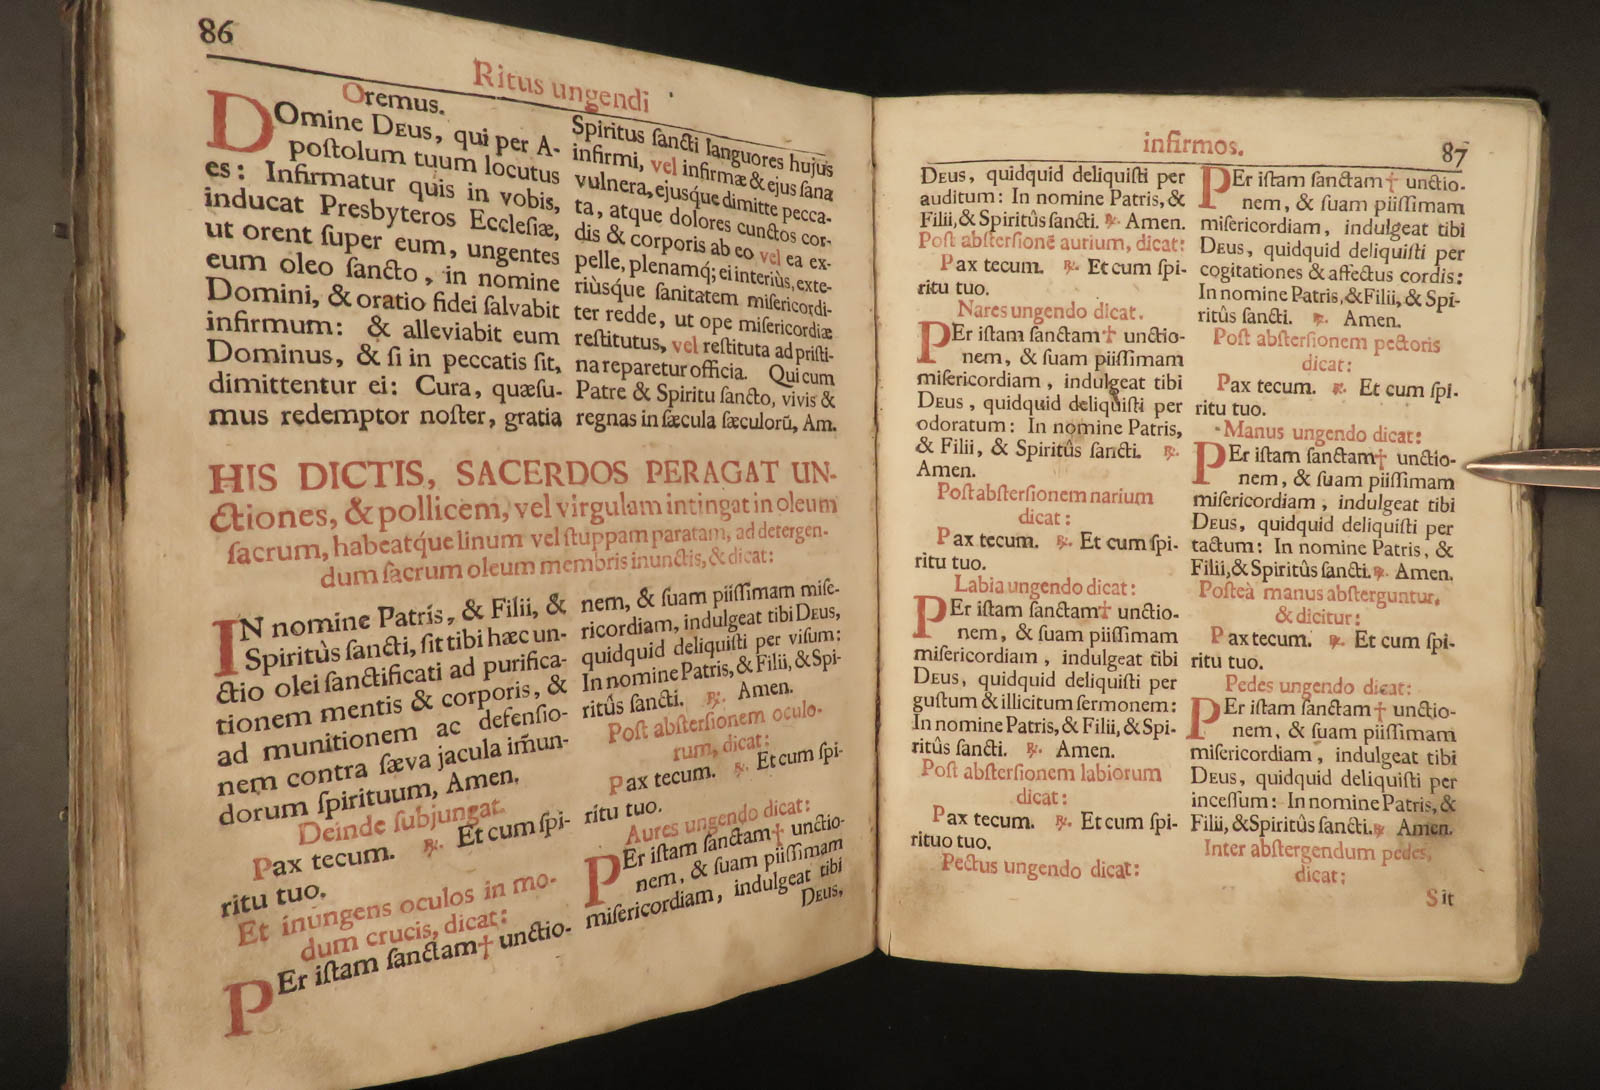 86
Ritus ungendi
Oremus.
DOmine DEUS, qui per A-
poſtolum tuum locutus
es: Infirmatur quis in vobis,
inducat Presbyteros Eccleſiæ,
ut orent ſuper eum, ungentes
eum oleo ſancto, in nomine
Domini, & oratio fidei ſalvabit
infirmum: & alleviabit eum
Dominus, & ſi in peccatis ſit,
dimittentur ei: Cura, quæſu-
mus redemptor noſter, gratia
Spiritus ſancti languores hujus
infirmi, vel infirmæ & ejus ſana
vulnera, ejuſque dimitte pecca-
ta, atque dolores cunctos cor-
dis & corporis ab eo vel ea ex-
pelle, plenamq; ei interiùs, exte-
riùsque ſanitatem miſericordi-
ter redde, ut ope miſericordiæ
reſtitutus, vel reſtituta ad priſti-
na reparetur officia. Qui cum
Patre & Spiritu ſancto, vivis &
regnas in ſæcula ſæculorũ, Am.
HIS DICTIS, SACERDOS PERAGAT UN-
ctiones, & pollicem, vel virgulam intingat in oleum
ſacrum, habeatq́ue linum vel ſtuppam paratam, ad detergen-
dum ſacrum oleum membris inunctis, & dicat:
IN nomine Patris, & Filii, &
Spiritûs ſancti, ſit tibi hæc un-
ctio olei ſanctificati ad purifica-
tionem mentis & corporis, &
ad munitionem ac defenſio-
nem contra ſæva jacula im̃un-
dorum ſpirituum, Amen.
Deinde ſubjungat.
Pax tecum. ℟. Et cum ſpi-
ritu tuo.
Et inungens oculos in mo-
dum crucis, dicat:
PEr iſtam ſanctam † unctio-
nem, & ſuam piiſſimam miſe-
ricordiam, indulgeat tibi DEUS,
quidquid deliquiſti per viſum:
In nomine Patris, & Filii, & Spi-
ritûs ſancti. ℟. Amen.
Poſt abſterſionem oculo-
rum, dicat:
Pax tecum. ℟. Et cum ſpi-
ritu tuo.
Aures ungendo dicat:
PEr iſtam ſanctam † unctio-
nem, & ſuam piiſſimam
miſericordiam, indulgeat tibi
DEUS,
infirmos.
87
DEUS, quidquid deliquiſti per
auditum: In nomine Patris, &
Filii, & Spiritûs ſancti. ℟. Amen.
Poſt abſterſionē aurium, dicat:
Pax tecum. ℟. Et cum ſpi-
ritu tuo.
Nares ungendo dicat.
PEr iſtam ſanctam † unctio-
nem, & ſuam piiſſimam
miſericordiam, indulgeat tibi
DEUS, quidquid deliquiſti per
odoratum: In nomine Patris,
& Filii, & Spiritûs ſancti. ℟.
Amen.
Poſt abſterſionem narium
dicat:
Pax tecum. ℟. Et cum ſpi-
ritu tuo.
Labia ungendo dicat:
PEr iſtam ſanctam † unctio-
nem, & ſuam piiſſimam
miſericordiam, indulgeat tibi
DEUS, quidquid deliquiſti per
guſtum & illicitum ſermonem:
In nomine Patris, & Filii, & Spi-
ritûs ſancti. ℟. Amen.
Poſt abſterſionem labiorum
dicat:
Pax tecum. ℟. Et cum ſpi-
rituo tuo.
Pectus ungendo dicat:
PEr iſtam ſanctam † unctio-
nem, & ſuam piiſſimam
miſericordiam, indulgeat tibi
DEUS, quidquid deliquiſti per
cogitationes & affectus cordis:
In nomine Patris, & Filii, & Spi-
ritûs ſancti. ℟. Amen.
Poſt abſterſionem pectoris
dicat:
Pax tecum. ℟. Et cum ſpi-
ritu tuo.
Manus ungendo dicat:
PEr iſtam ſanctam † unctio-
nem, & ſuam piiſſimam
miſericordiam, indulgeat tibi
DEUS, quidquid deliquiſti per
tactum: In nomine Patris, &
Filii, & Spiritûs ſancti. ℟. Amen.
Poſteà manus abſterguntur,
& dicitur:
Pax tecum. ℟. Et cum ſpi-
ritu tuo.
Pedes ungendo dicat:
PEr iſtam ſanctam † unctio-
nem, & ſuam piiſſimam
miſericordiam, indulgeat tibi
DEUS, quidquid deliquiſti per
inceſſum: In nomine Patris, &
Filii, & Spiritûs ſancti. ℟ Amen.
Inter abſtergendum pedes,
dicat:
Sit